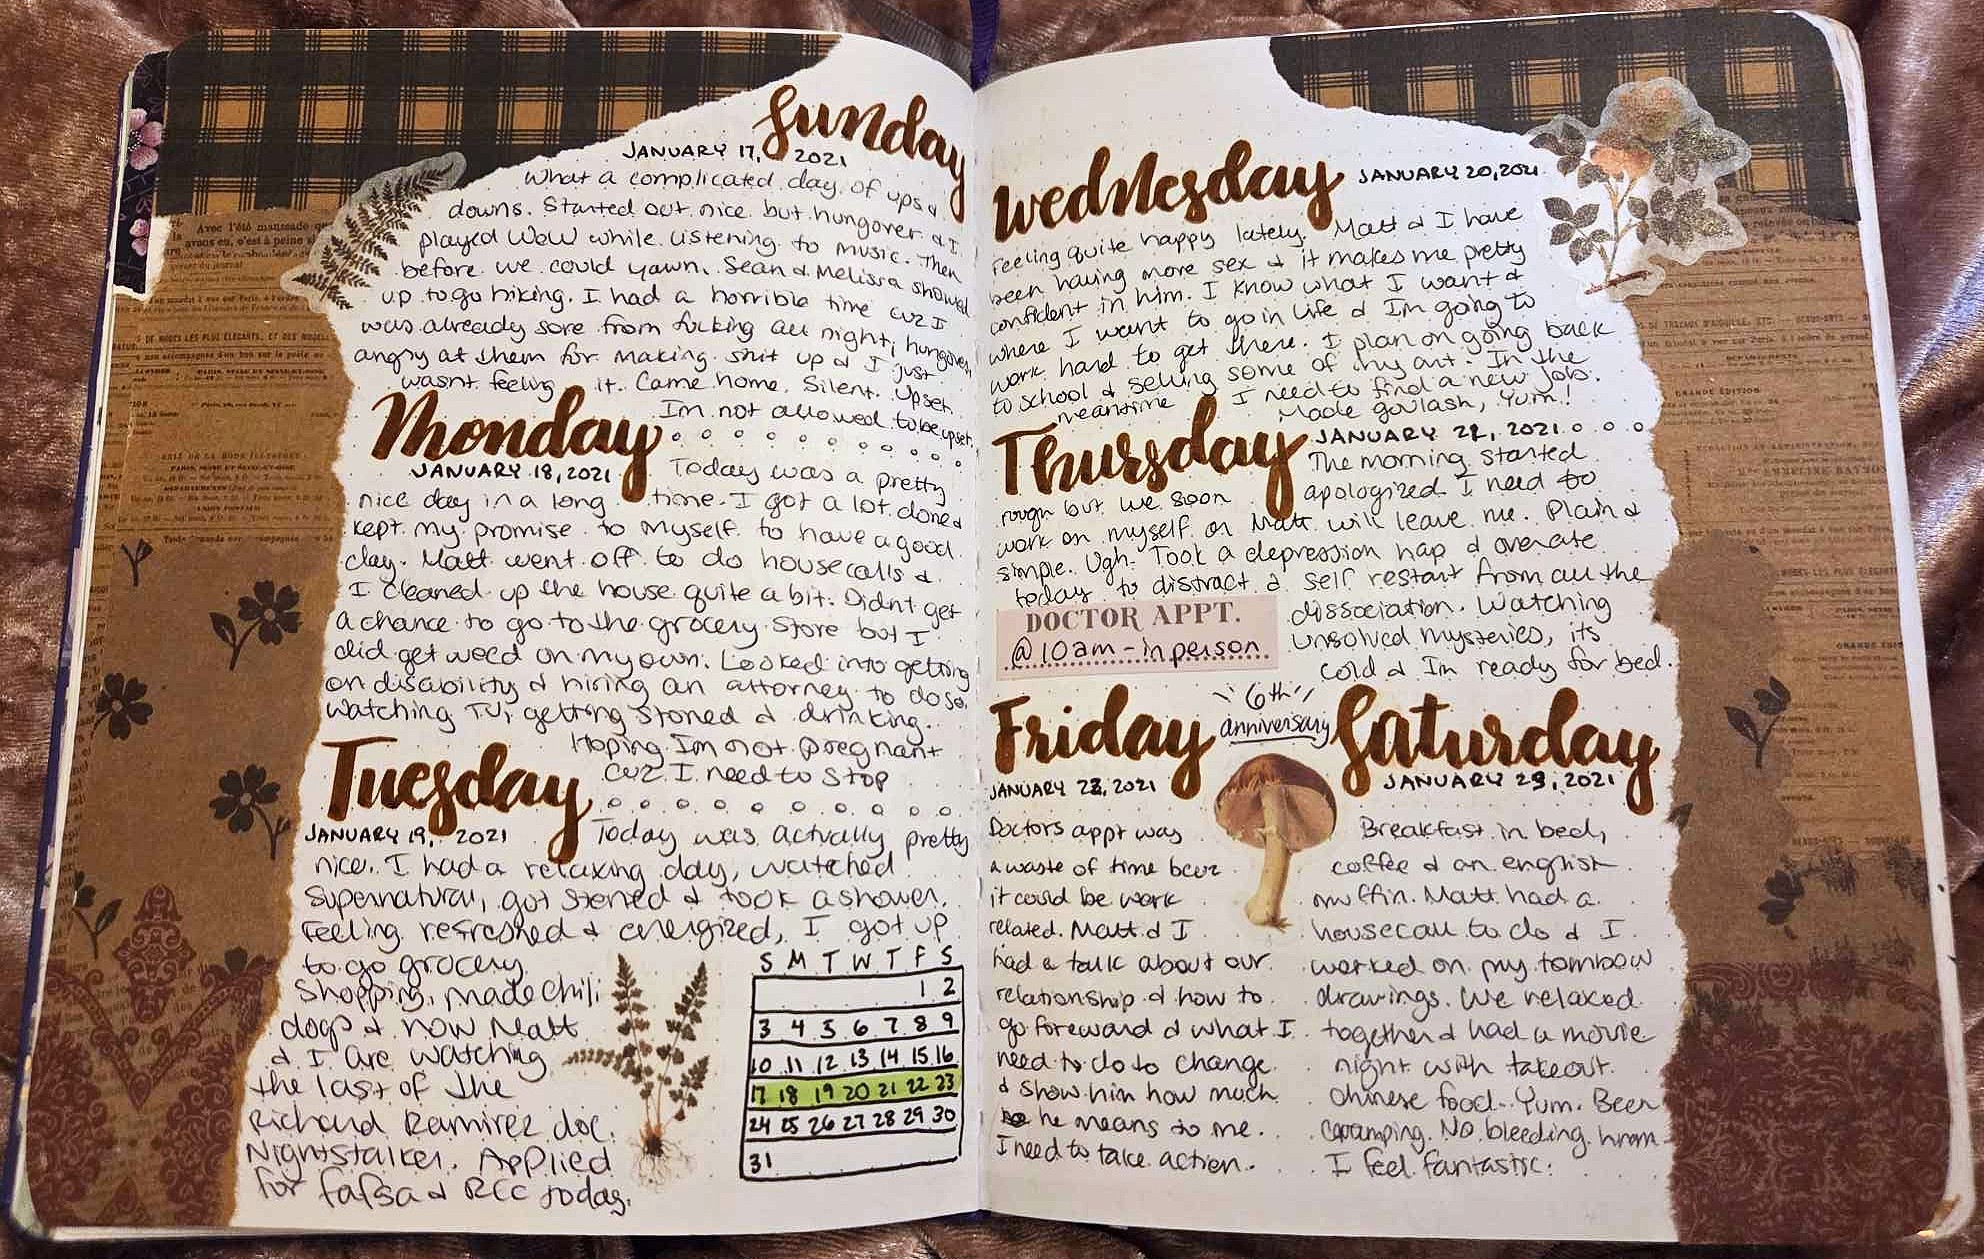 Sunday
JANUARY 17, 2021
What a complicated day of ups &
downs. Started out nice but hungover & I
played WoW while listening to music. Then
before we could yawn, Sean & Melissa showed
up to go hiking. I had a horrible time cuz I
was already sore from fucking all night, hungover,
angry at them for making shit up & I just
wasnt feeling it. Came home. Silent. Upset.
Im not allowed to be upset.
Monday
JANUARY 18, 2021
Today was a pretty
nice day in a long time. I got a lot done &
kept my promise to myself to have a good
day. Matt went off to do housecalls &
I cleaned up the house quite a bit. Didnt get
a chance to go to the grocery store but I
did get weed on my own. Looked into getting
on disability & hiring an attorney to do so.
Watching TV, getting stoned & drinking.
Hoping Im not pregnant
cuz I need to stop
Tuesday
JANUARY 19, 2021
Today was actually pretty
nice. I had a relaxing day, watched
Supernatural, got stoned & took a shower.
Feeling refreshed & energized, I got up
to go grocery
shopping, made chili
dogs & now Matt
& I are watching
the last of the
Richard Ramirez doc.
Nightstalker. Applied
for fafsa & RCC today.
S M T W T F S
1 2
3 4 5 6 7 8 9
10 11 12 13 14 15 16
17 18 19 20 21 22 23
24 25 26 27 28 29 30
31
Wednesday
JANUARY 20, 2021
Feeling quite happy lately. Matt & I have
been having more sex & it makes me pretty
confident in him. I know what I want &
where I want to go in life & Im going to
work hard to get there. I plan on going back
to school & selling some of my art. In the
meantime I need to find a new job.
Made goulash, Yum!
Thursday
JANUARY 21, 2021
The morning started
rough but we soon apologized. I need to
work on myself or Matt will leave me. Plain &
simple. Ugh. Took a depression nap & overate
today to distract & self restart from all the
dissociation. Watching
unsolved mysteries, its
cold & Im ready for bed.
DOCTOR APPT.
@ 10am - in person
Friday
6th
anniversary
JANUARY 22, 2021
Doctors appt was
a waste of time becuz
it could be work
related. Matt & I
had a talk about our
relationship & how to
go foreward & what I
need to do to change
& show him how much
he means to me.
I need to take action.
Saturday
JANUARY 23, 2021
Breakfast in bed,
coffee & an english
muffin. Matt had a
housecall to do & I
worked on my tombow
drawings. We relaxed
together & had a movie
night with takeout.
Chinese food. Yum. Been
cramping. No bleeding. hmm
I feel fantastic.
Avec l'été
PARIS, SEINE ET SEINE-ET-OISE
GRANDE ÉDITION